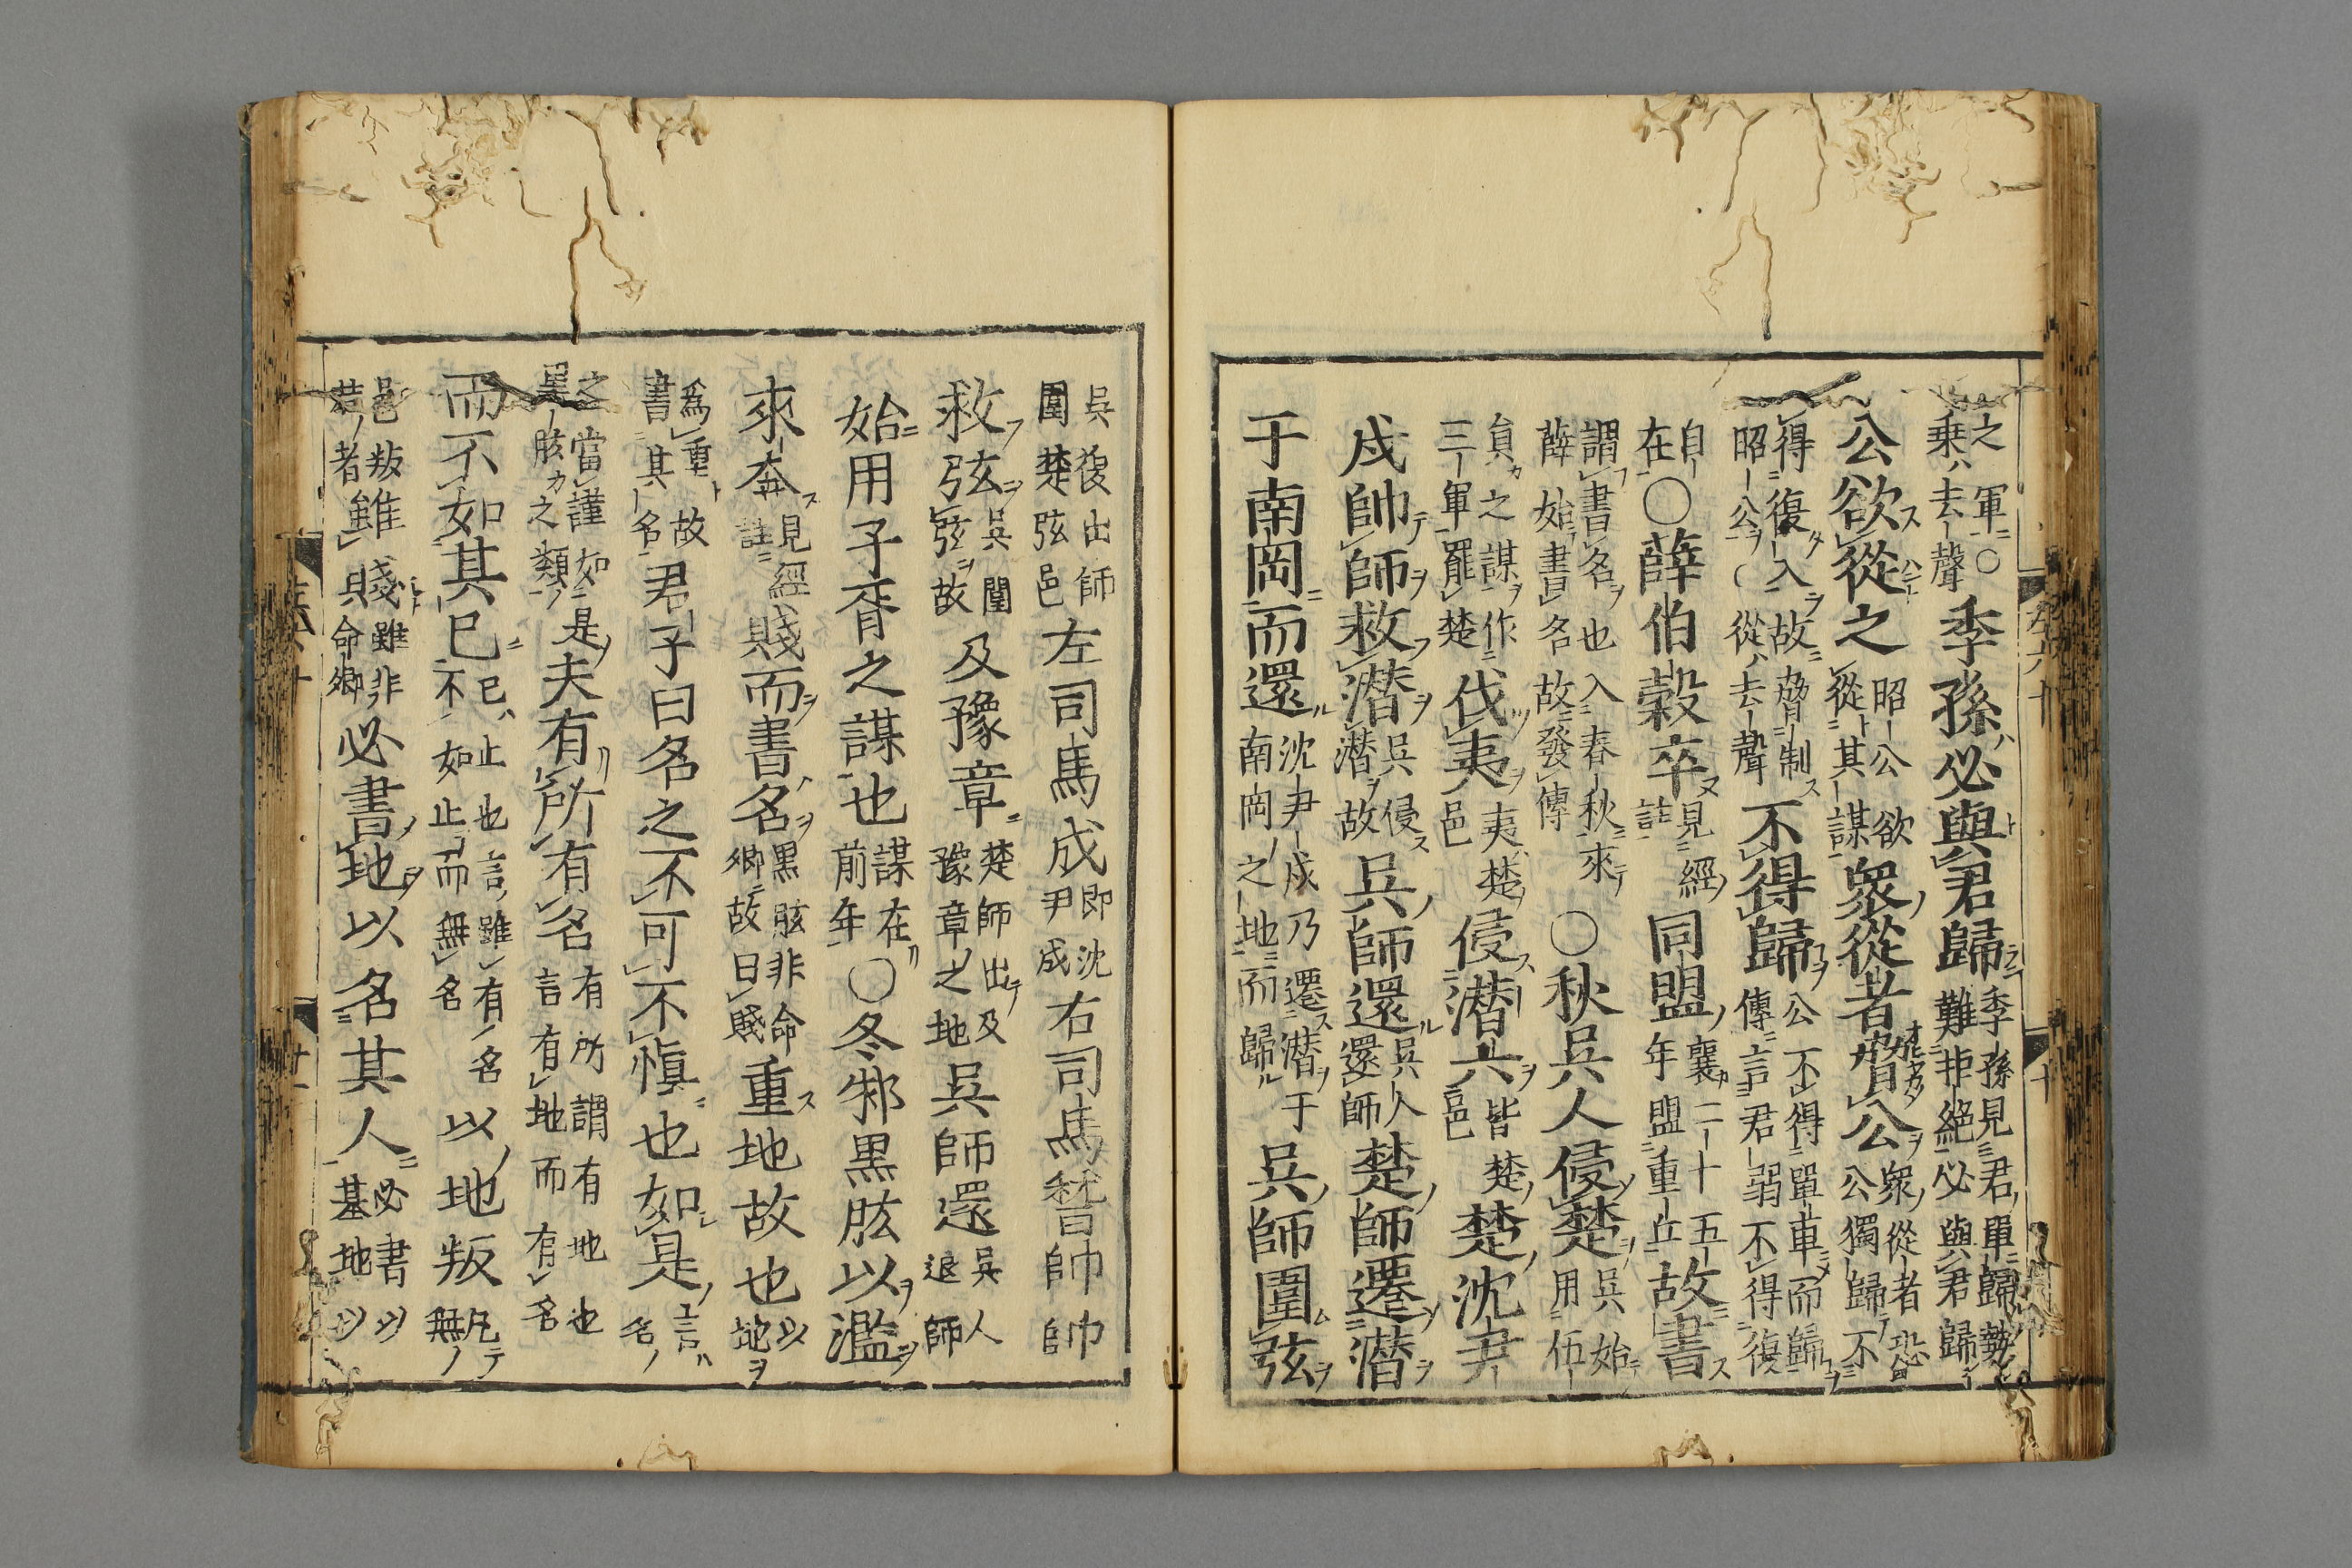 之軍○乗去聲季孫必與君歸季孫見君單歸勢難拒絕必與君歸
公欲從之昭公欲從其謀衆從者脅公衆從者恐公獨歸不
得復入故脅制昭公(從去聲不得歸公不得單車而歸傳言君弱不得復
自在○薛伯穀卒見經註同盟襄二十五年盟重丘故書
謂書名也入春秋來薛始書名故發傳○秋吳人侵楚吳始用伍
員之謀作三軍罷楚伐夷夷楚邑侵潜六皆楚邑楚沈尹
戍帥師救潜吳侵潜故吳師還吳人還師楚師遷潜
于南岡而還沈尹戍乃遷潜于南岡之地而歸吳師圍弦
吳復出師圍楚弦邑左司馬戍即沈尹戍右司馬稽帥師
救弦吳圍弦故及豫章楚師出及豫章之地吳師還吳人退師
始用子胥之謀也謀在前年○冬邾黒肱以濫
來奔見經註賤而書名黒肱非命卿故曰賤重地故也以地
為重故書其名君子曰名之不可不慎也如是言名
之當謹如黒肱之類是夫有所有名有所謂有地也言有地而有名
而不如其已已止也言雖有名不如止而無名以地叛凡無
邑叛者雖賤雖非命卿必書地以名其人必書以地以